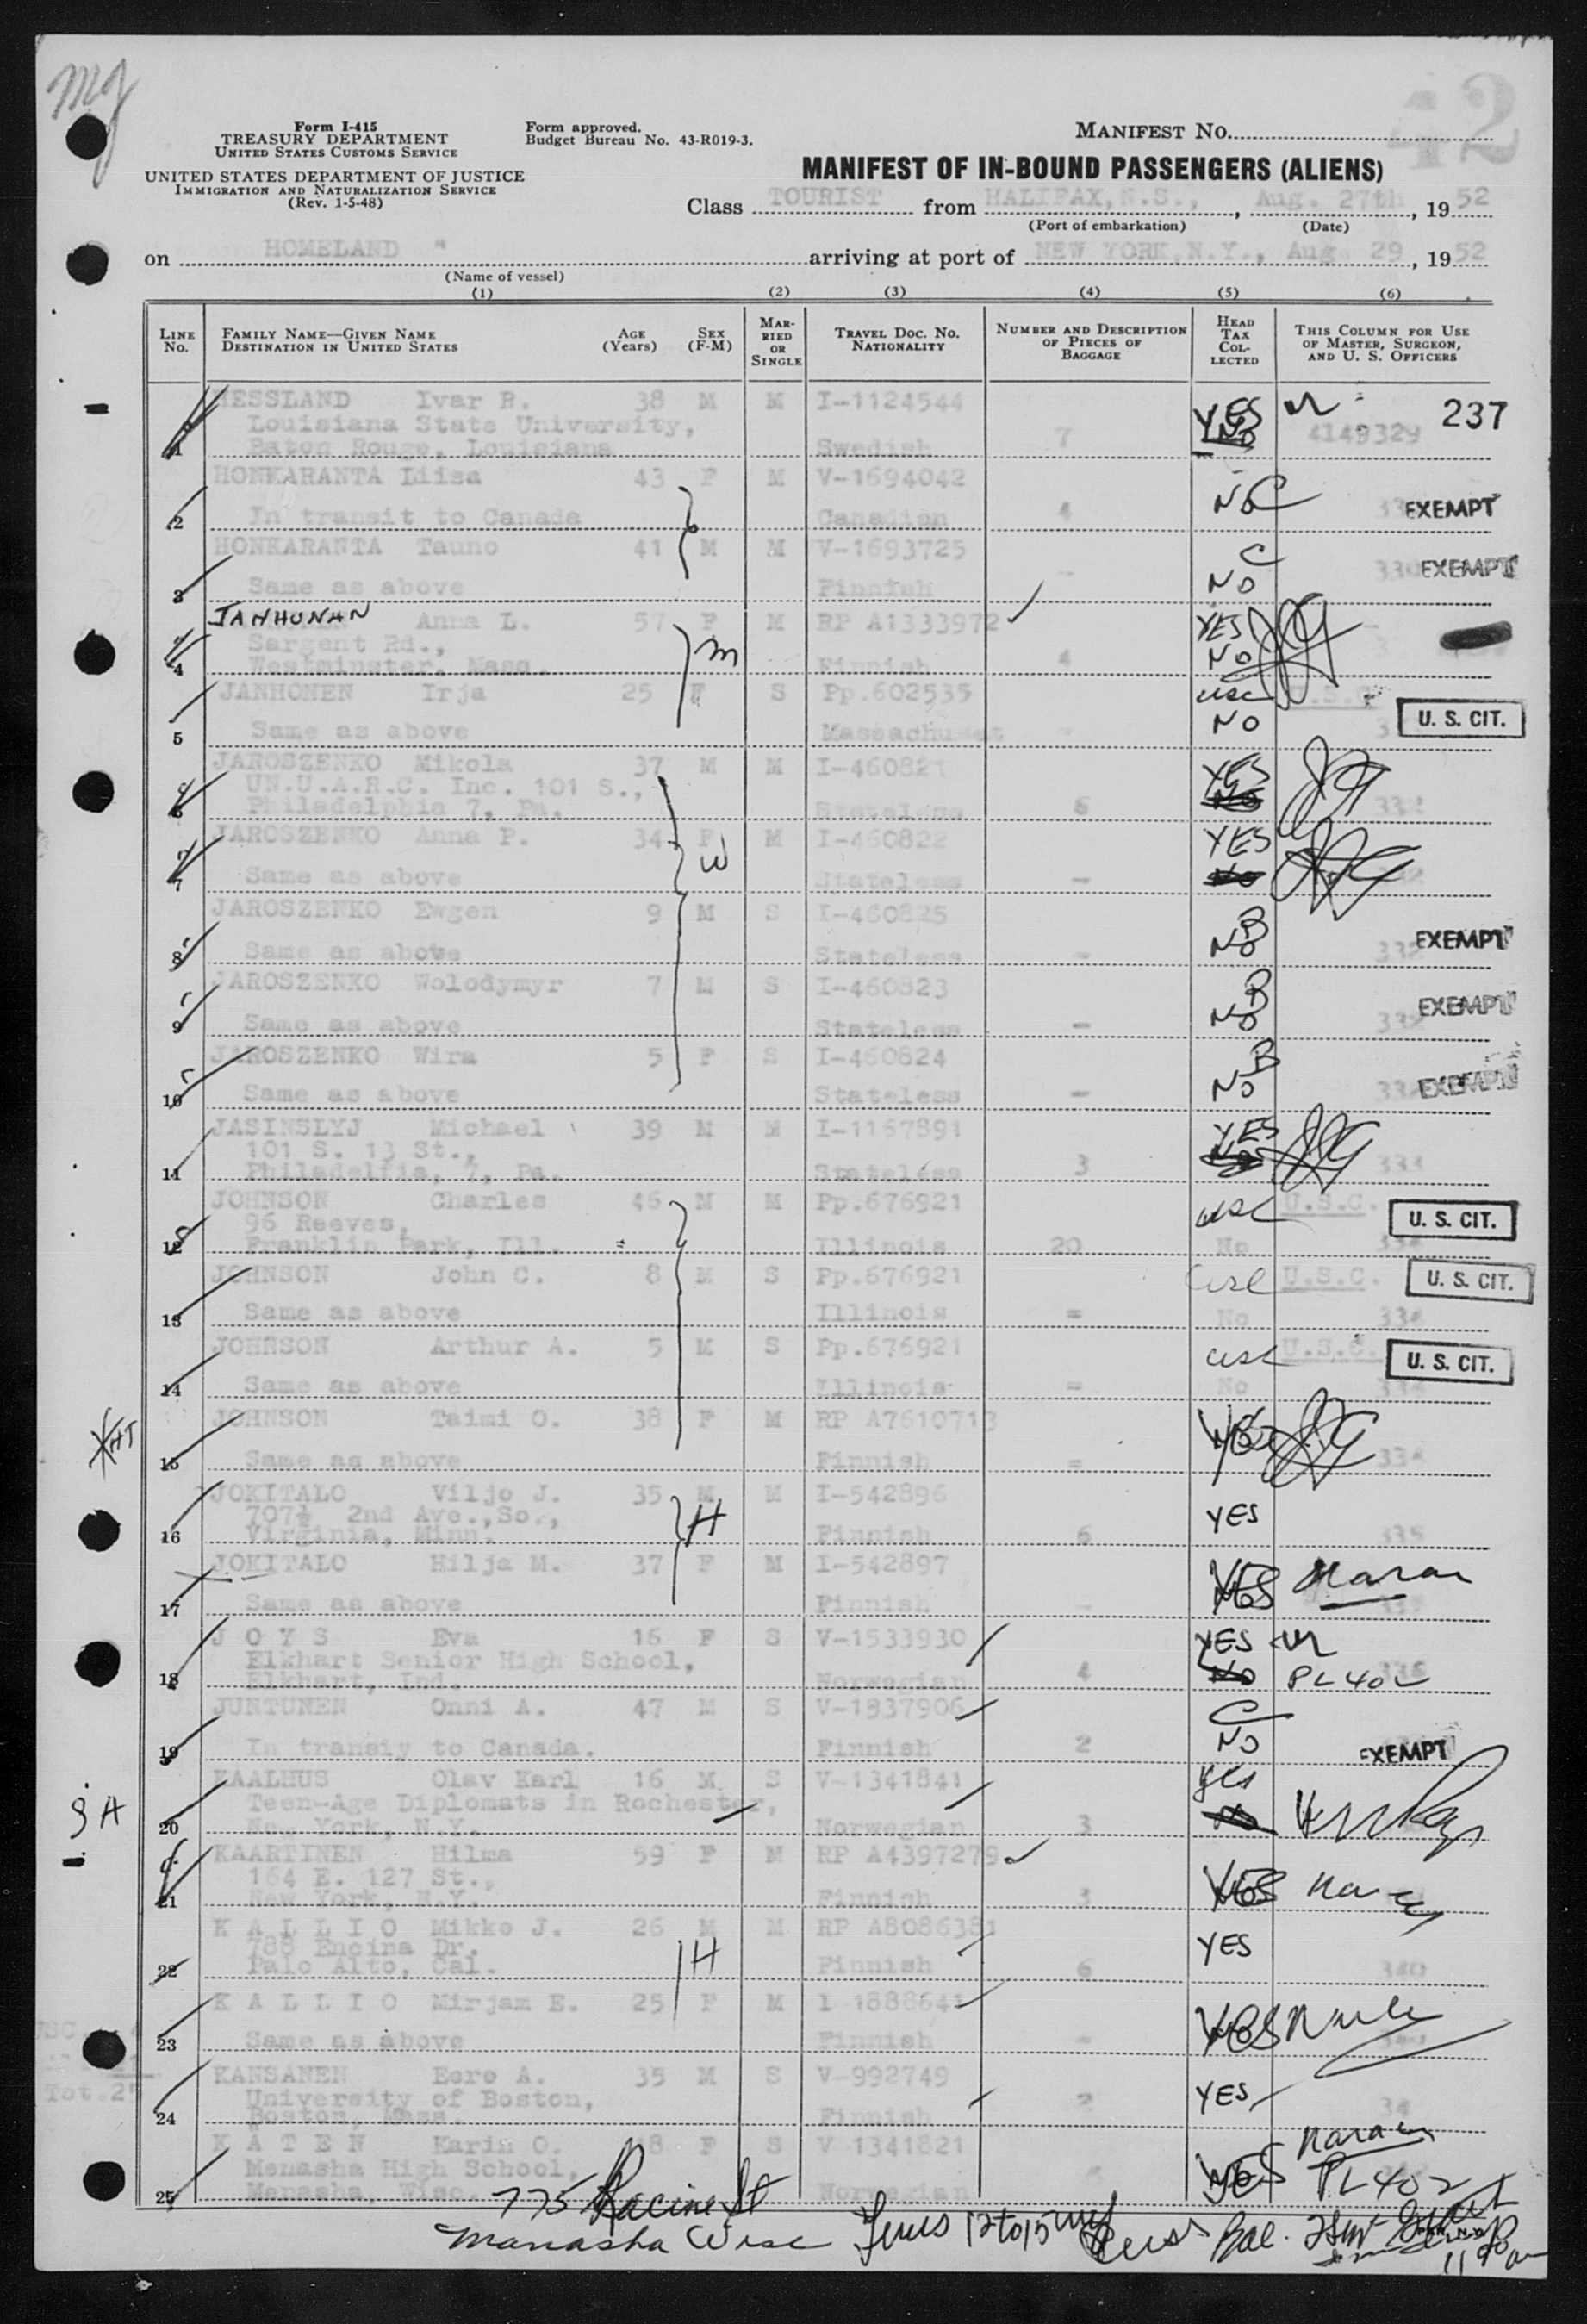 mg
42
Form I-415
TREASURY DEPARTMENT
UNITED STATES CUSTOMS SERVICE
UNITED STATES DEPARTMENT OF JUSTICE
IMMIGRATION AND NATURALIZATION SERVICE
(Rev. 1-5-48)
Form approved.
Budget Bureau No. 43-R019-3.
MANIFEST NO.
MANIFEST OF IN-BOUND PASSENGERS (ALIENS)
Class TOURIST from HALIFAX, N.S., Aug. 27th, 1952
(Port of embarkation) (Date)
on HOMELAND " arriving at port of NEW YORK, N.Y., Aug. 29, 1952
(Name of vessel)
(1) (2) (3) (4) (5) (6)
LINE No. FAMILY NAME—GIVEN NAME DESTINATION IN UNITED STATES AGE (Years) SEX (F-M) MARRIED OR SINGLE TRAVEL DOC. NO. NATIONALITY NUMBER AND DESCRIPTION OF PIECES OF BAGGAGE HEAD TAX COLLECTED THIS COLUMN FOR USE OF MASTER, SURGEON, AND U. S. OFFICERS
HESSLAND Ivar R. 38 M M I-1124544 YES 237
Louisiana State University,
1 Baton Rouge, Louisiana Swedish 7 No 4149329
HONKARANTA Liisa 43 F M V-1694042
2 In transit to Canada Canadian 4 No C EXEMPT
HONKARANTA Tauno 41 M M V-1693725 C
3 Same as above Finnish - No 330 EXEMPT
JANHUNAN Anna L. 57 F M RP A1333972 YES
Sargent Rd.,
4 Westminster, Mass. Finnish 4 No
m
JANHONEN Irja 25 F S Pp.602535 usc U.S.C.
5 Same as above Massachuset - NO U. S. CIT.
JAROSZENKO Mikola 37 M M I-460821 YES
UN.U.A.R.C. Inc. 101 S.,
6 Philadelphia 7, Pa. Stateless 6 No 332
JAROSZENKO Anna P. 34 F M I-460822 YES
W
7 Same as above Stateless - No
JAROSZENKO Ewgen 9 M S I-460825 B
8 Same as above Stateless - No 332 EXEMPT
JAROSZENKO Wolodymyr 7 M S I-460823 B
9 Same as above Stateless - No 332 EXEMPT
JAROSZENKO Wira 5 F S I-460824 B
10 Same as above Stateless - No 332 EXEMPT
JASINSLYJ Michael 39 M M I-1167891 YES
101 S. 13 St.,
11 Philadelfia, 7, Pa. Stateless 3 333
JOHNSON Charles 46 M M Pp.676921 usc U.S.C. U. S. CIT.
96 Reeves,
12 Franklin Park, Ill. Illinois 20 No 334
JOHNSON John C. 8 M S Pp.676921 usc U.S.C. U. S. CIT.
13 Same as above Illinois = No 334
JOHNSON Arthur A. 5 M S Pp.676921 usc U.S.C. U. S. CIT.
14 Same as above Illinois = No 334
JOHNSON Taimi O. 38 F M RP A7610713
15 Same as above Finnish = 334
JOKITALO Viljo J. 35 M M I-542896
707½ 2nd Ave.,So., H YES
16 Virginia, Minn. Finnish 6 335
JOKITALO Hilja M. 37 F M I-542897 YES
17 Same as above Finnish -
J O Y S Eva 16 F S V-1533930 YES
Elkhart Senior High School,
18 Elkhart, Ind. Norwegian 4 No PL 402
JUNTUNEN Onni A. 47 M S V-1837906 C
19 In transiy to Canada. Finnish 2 NO EXEMPT
KAALHUS Olav Karl 16 M S V-1341841 yes
Teen-Age Diplomats in Rochester,
20 New York, N.Y. Norwegian 3 No
KAARTINEN Hilma 59 F M RP A4397279
164 E. 127 St.,
21 New York, N.Y. Finnish 3 YES
K A L L I O Mikko J. 26 M M RP A8086381 YES
788 Encina Dr. H
22 Palo Alto, Cal. Finnish 6 340
K A L L I O Mirjam E. 25 F M I 1888641
23 Same as above Finnish - YES
KANSANEN Eero A. 35 M S V-992749 YES
University of Boston,
24 Boston, Mass. Finnish 2
K A T E N Karin O. 18 F S V 1341821
Menasha High School,
25 Menasha, Wisc. Norwegian YES PL 402
775 Racine St
Manasha Wisc Lines 12 to 15